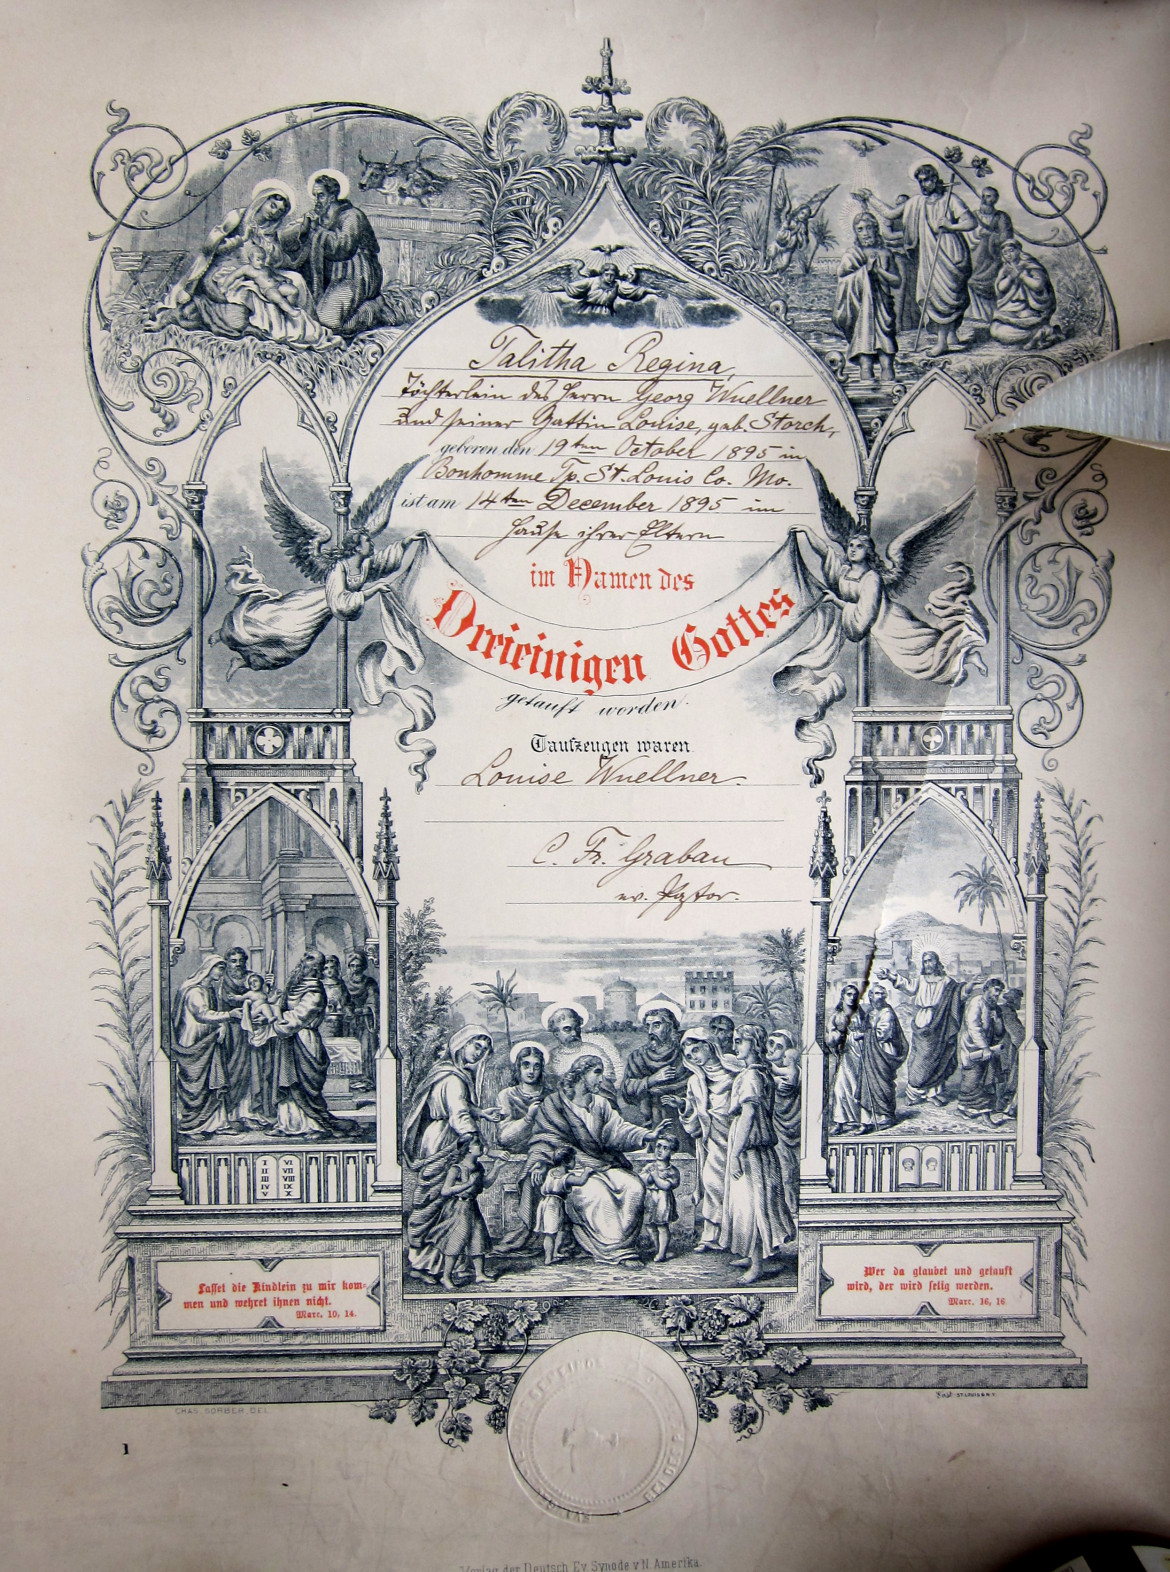 Talitha Regina,
Töchterlein des Herrn Georg Wuellner
und seiner Gattin Louise, geb. Storch,
geboren den 19ten October 1895 in
Bonhomme Tp. St. Louis Co. Mo.
ist am 14ten December 1895 im
Hause ihrer Eltern
im Namen des
Dreieinigen Gottes
getauft worden.
Taufzeugen waren
Louise Wuellner.
C. Fr. Grabau
ev. Pastor.
I
II
III
IV
V
VI
VII
VIII
IX
X
Lasset die Kindlein zu mir kom=
men und wehret ihnen nicht.
Marc. 10, 14.
Wer da glaubet und getauft
wird, der wird selig werden.
Marc. 16, 16
CHAS. GORBER DEL.
ST. LOUIS & N.Y.
1
Verlag der Deutsch. Ev. Synode v. N. Amerika.